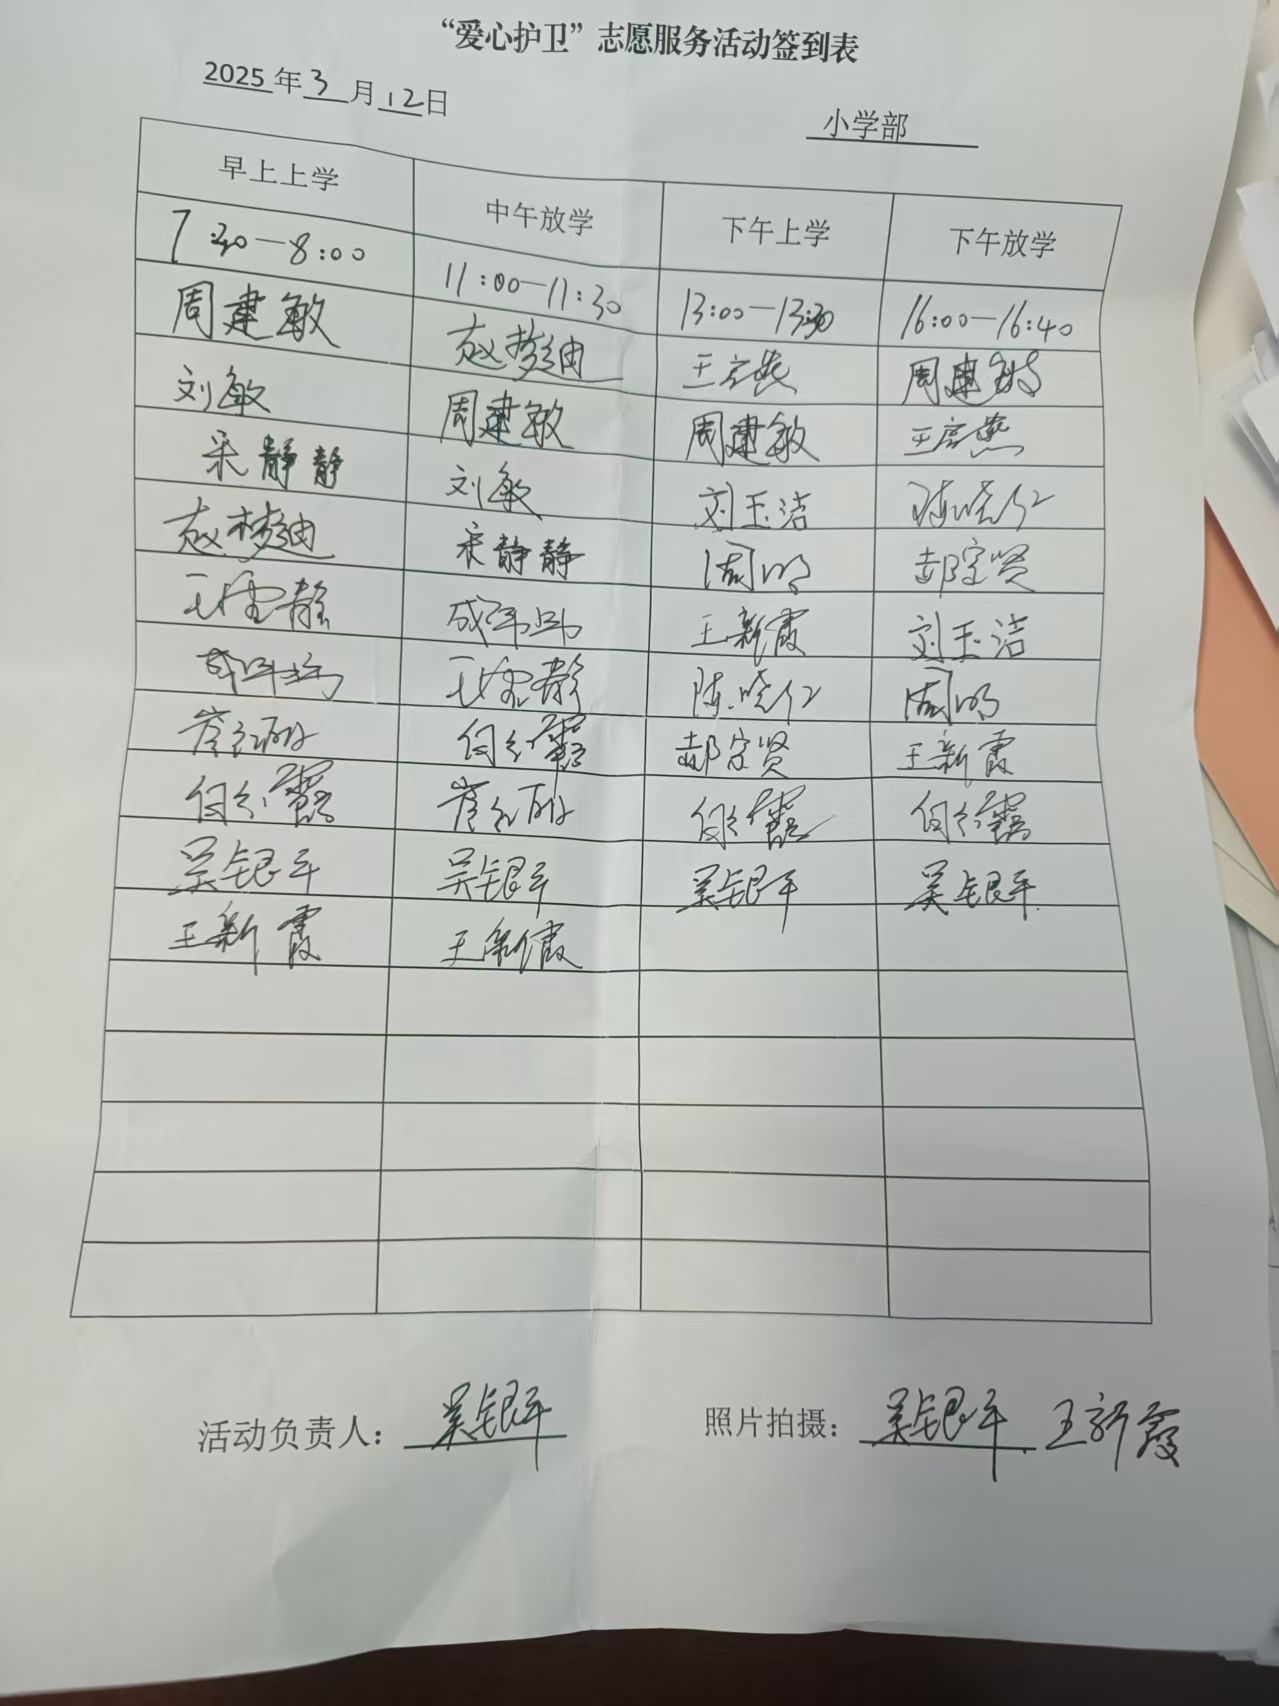 “爱心护卫”志愿服务活动签到表
2025年3月12日
小学部
早上上学 中午放学 下午上学 下午放学
7:30—8:00 11:00—11:30 13:00—13:30 16:00—16:40
周建敏 赵梦迪 王宏燕 周建敏
刘敏 周建敏 周建敏 王宏燕
宋静静 刘敏 刘玉洁 陈晓仁
赵梦迪 宋静静 周明 郝定贤
王雪静 成海玮 王新霞 刘玉洁
王雪静 陈晓仁 周明
郝定贤 王新霞
吴银平 吴银平 吴银平 吴银平
王新霞 王新霞
活动负责人：吴银平 照片拍摄：吴银平 王新霞